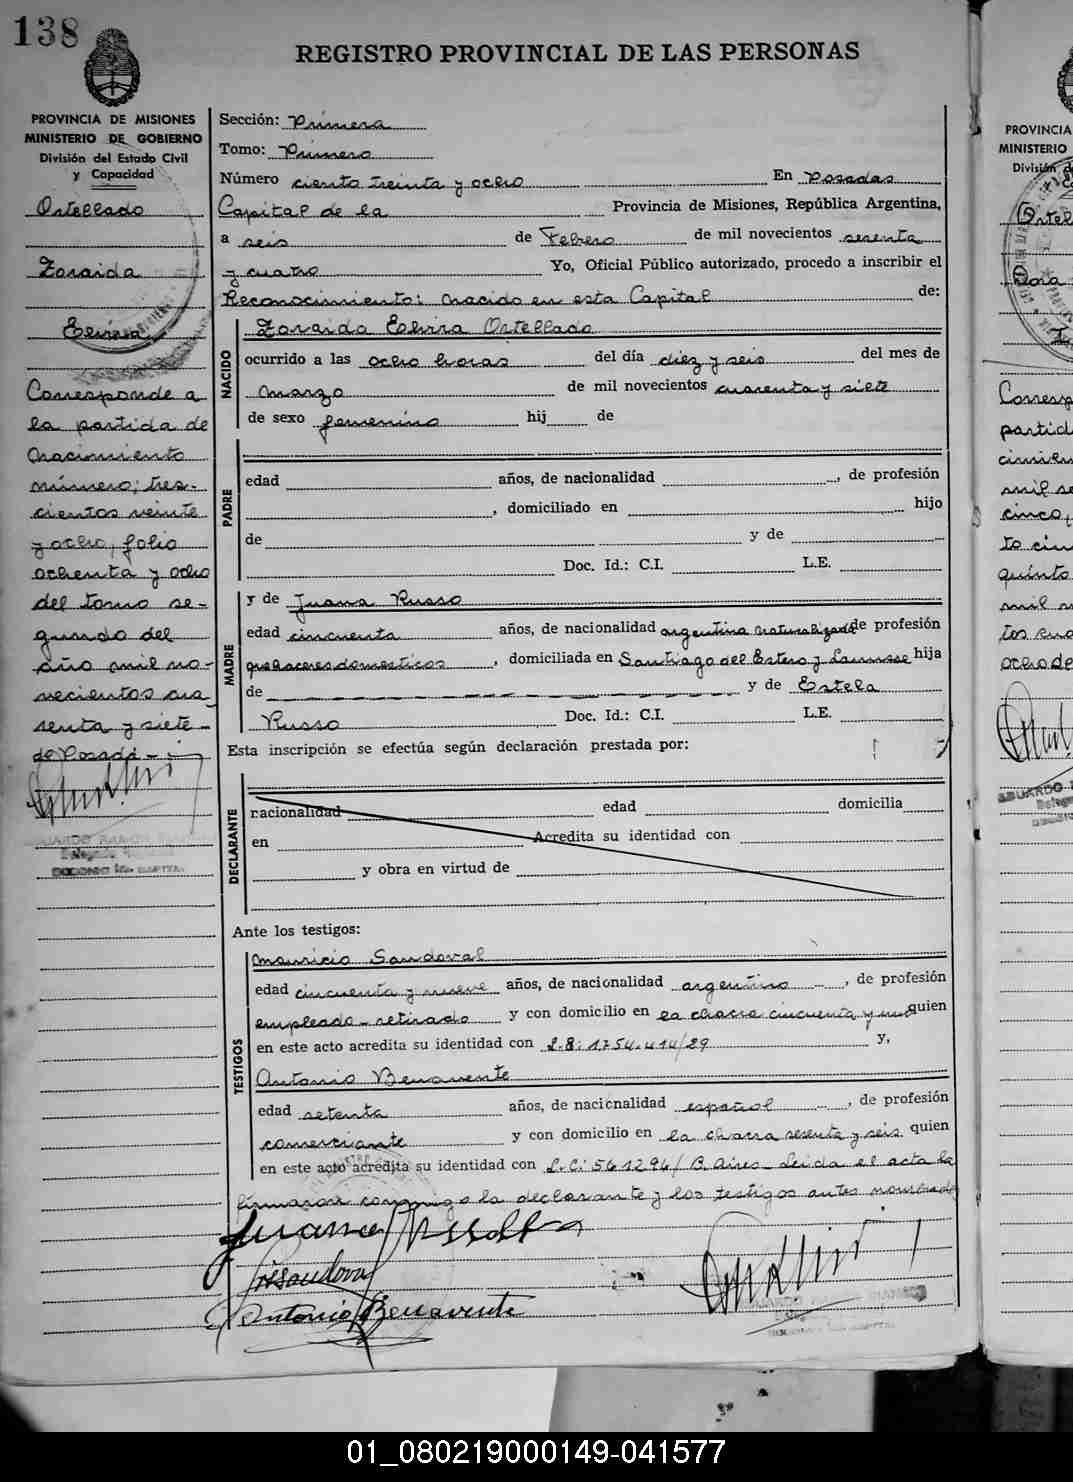 138
REGISTRO PROVINCIAL DE LAS PERSONAS
PROVINCIA DE MISIONES
MINISTERIO DE GOBIERNO
División del Estado Civil
y Capacidad
Ortellado
Zoraida
Elvira
Corresponde a
la partida de
nacimiento
número; tres-
cientos veinte
y ocho, folio
ochenta y ocho
del tomo se-
gundo del
año mil no-
vecientos cua
renta y siete-
de Posadas-
Sección: Primera
Tomo: Primero
Número ciento treinta y ocho En Posadas
Capital de la Provincia de Misiones, República Argentina,
a seis de Febrero de mil novecientos sesenta
y cuatro Yo, Oficial Público autorizado, procedo a inscribir el
Reconocimiento: nacido en esta Capital de:
NACIDO
Zoraida Elvira Ortellado
ocurrido a las ocho horas del día diez y seis del mes de
marzo de mil novecientos cuarenta y siete
de sexo femenino hij de
PADRE
edad años, de nacionalidad , de profesión
, domiciliado en hijo
de y de
Doc. Id.: C.I. L.E.
MADRE
y de Juana Russo
edad cincuenta años, de nacionalidad argentina naturalizada de profesión
quehaceres domesticos , domiciliada en Santiago del Estero y Lanusse hija
de y de Estela
Russo Doc. Id.: C.I. L.E.
Esta inscripción se efectúa según declaración prestada por:
DECLARANTE
nacionalidad edad domicilia
en Acredita su identidad con
y obra en virtud de
Ante los testigos:
TESTIGOS
Mauricio Sandoval
edad cincuenta y nueve años, de nacionalidad argentino , de profesión
empleado-retirado y con domicilio en la chacra cincuenta y uno quien
en este acto acredita su identidad con L.E: 1.754.414/29 y,
Antonio Benavente
edad setenta años, de nacionalidad español , de profesión
comerciante y con domicilio en la chacra sesenta y seis quien
en este acto acredita su identidad con L.C: 561296/B. Aires- Leida el acta la
firmaron conmigo la declarante y los testigos antes nombrados
Juana Russo
MSandoval
Antonio Benavente
PROVINCIA
MINISTERIO
División
Ortel
partid
mil se
cinco,
quinto
ocho de
01_080219000149-041577